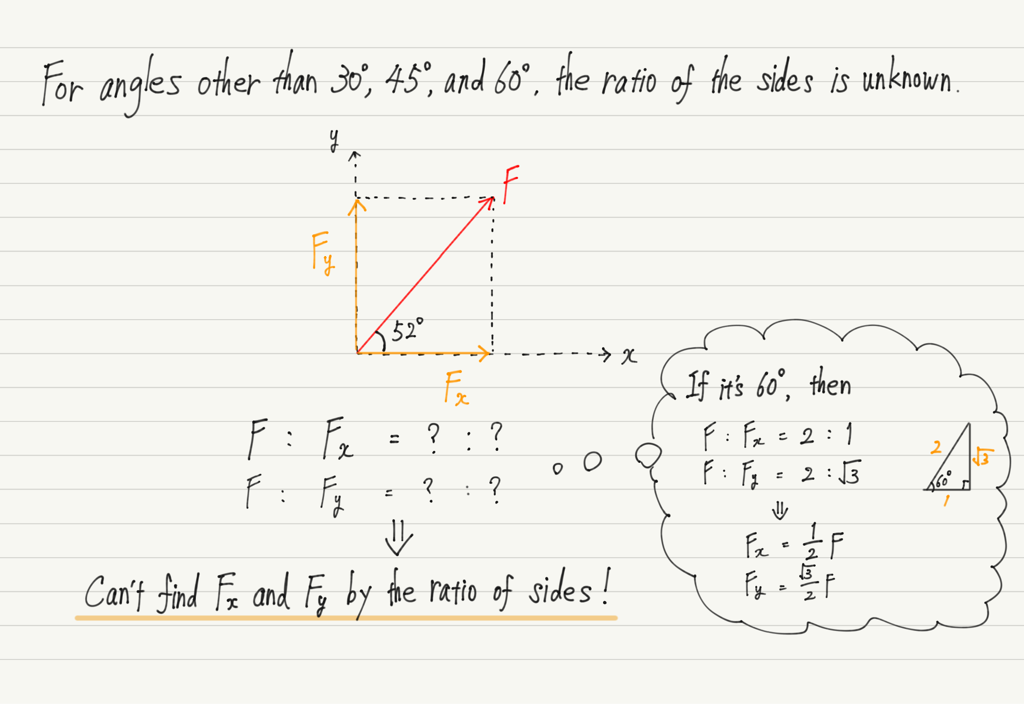 For angles other than 30°, 45°, and 60°, the ratio of the sides is unknown.
y
F
F_y
52°
x
F_x
F : F_x = ? : ?
F : F_y = ? : ?
⇓
Can't find F_x and F_y by the ratio of sides!
If it's 60°, then
F : F_x = 2 : 1
F : F_y = 2 : √3
⇓
F_x = 1/2 F
F_y = √3/2 F
2
√3
60°
1